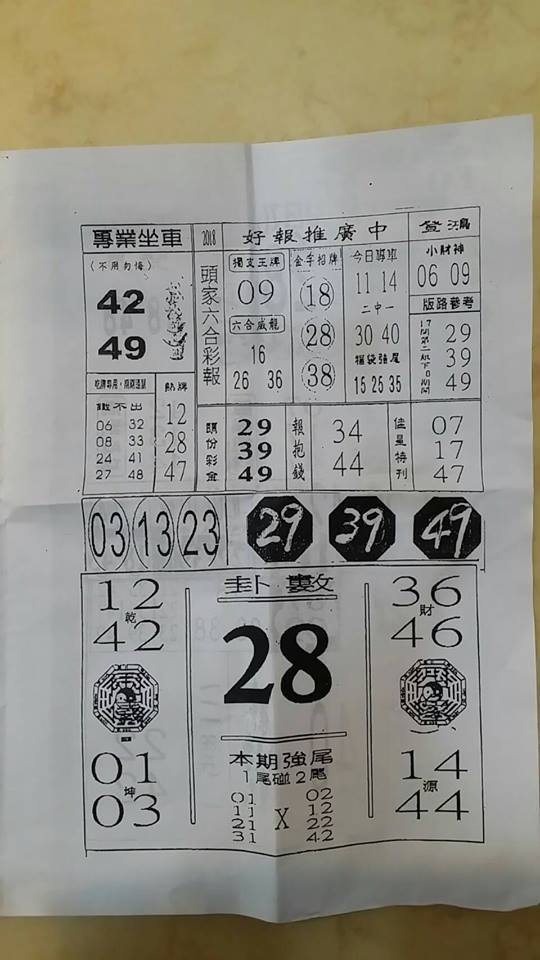 專業坐車
(不用勿悔)
42
49
熱牌
12
28
47
鐵不出
06 32
08 33
24 41
27 48
2018
頭家六合彩報
好報推廣中
獨支王牌
09
六合威龍
16
26 36
金手招牌
18
28
38
今日專車
11 14
二中一
30 40
福袋強尾
15 25 35
登鴻
小財神
06 09
版路參考
29
39
49
頭份彩金
29
39
49
報抱錢
34
44
佳星特刊
07
17
47
03 13 23
29 39 49
12
乾
42
01
坤
03
卦數
28
本期強尾
1尾碰2尾
01 02
11 12
21 X 22
31 42
36
財
46
14
源
44